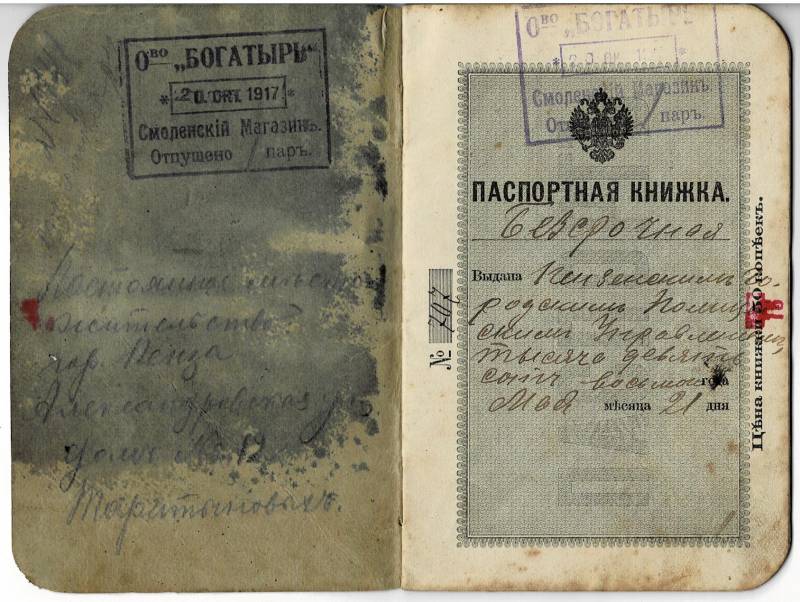 О-во „БОГАТЫРЬ“
* 20. ОКТ. 1917 *
Смоленскій Магазинъ.
Отпущено / паръ.
Постоянное место
жительство
гор Пенза
Александровская ул
домъ № 12
О-во „БОГАТЫРЬ“
Смоленскій Магазинъ.
паръ.
ПАСПОРТНАЯ КНИЖКА.
Безсрочная
Выдана Пензенскимъ Го-
родскимъ Полицей-
скимъ Управленіем
тысяча девять
сотъ восьмого года
Мая мѣсяца 21 дня
№ 707
Цѣна книжки 50 копѣекъ.